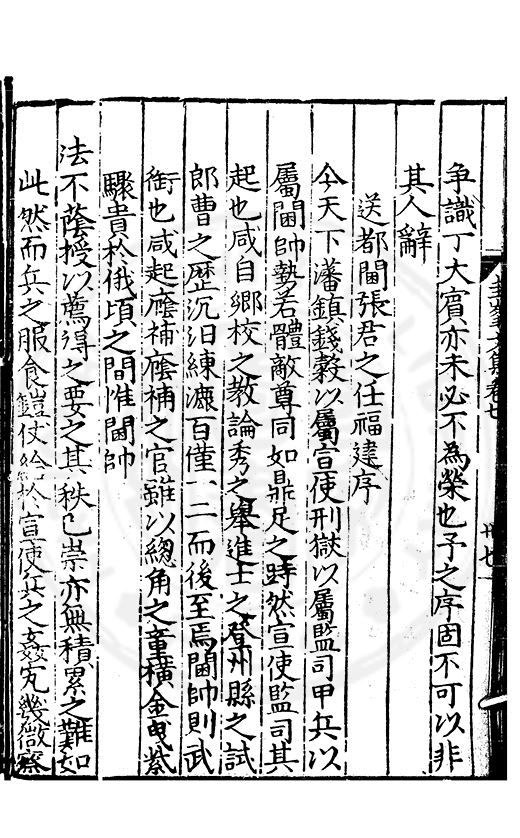 争識丁大賔亦未必不為榮也予之序固不可以非
其人辭
送都閫張君之任福建序
今天下藩鎮錢糓以屬宣使刑獄以屬監司甲兵以
屬閫帥勢若體敵尊同如鼎足之跱然宣使監司其
起也咸自鄉校之教論秀之舉進士之登州縣之試
郎曹之歴沉汨練漉百僅一二而後至焉閫帥則武
銜也咸起廕補廕補之官雖以總角之童横金曳紫
驟貴於俄頃之間惟閫帥
法不蔭授以薦得之要之其秩已崇亦無積累之難如
此然而兵之服食鎧仗給於宣使兵之姦宄幾微察